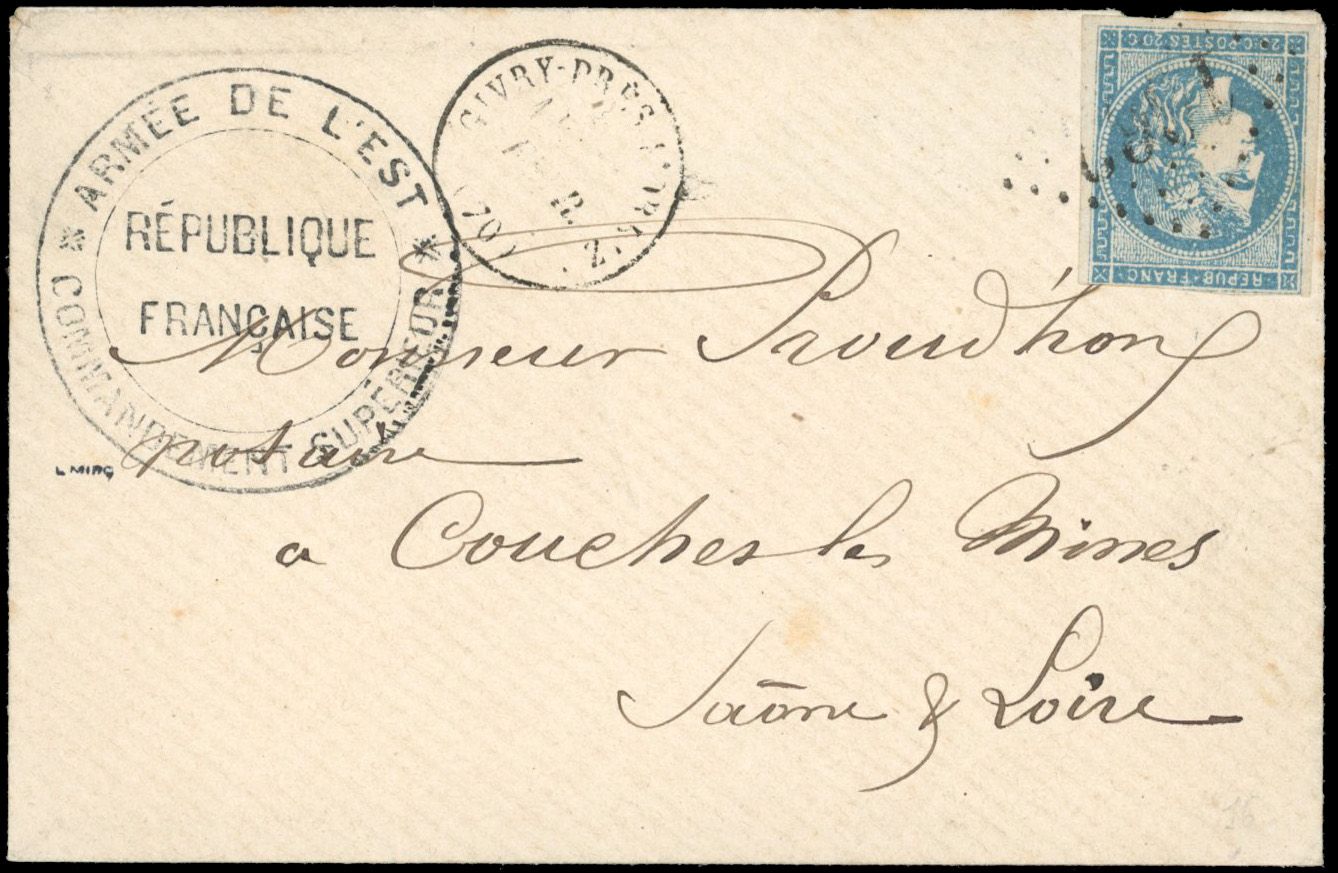 * ARMÉE DE L'EST *
RÉPUBLIQUE
FRANÇAISE
COMMANDEMENT SUPÉRIEUR
L MIRO
GIVRY-PRÈS-L'ORBIZE
(70)
20 C POSTES 20 C
REPUB · FRANC
Monsieur Proudhon
notaire
a Couches les Mines
Saône & Loire
16